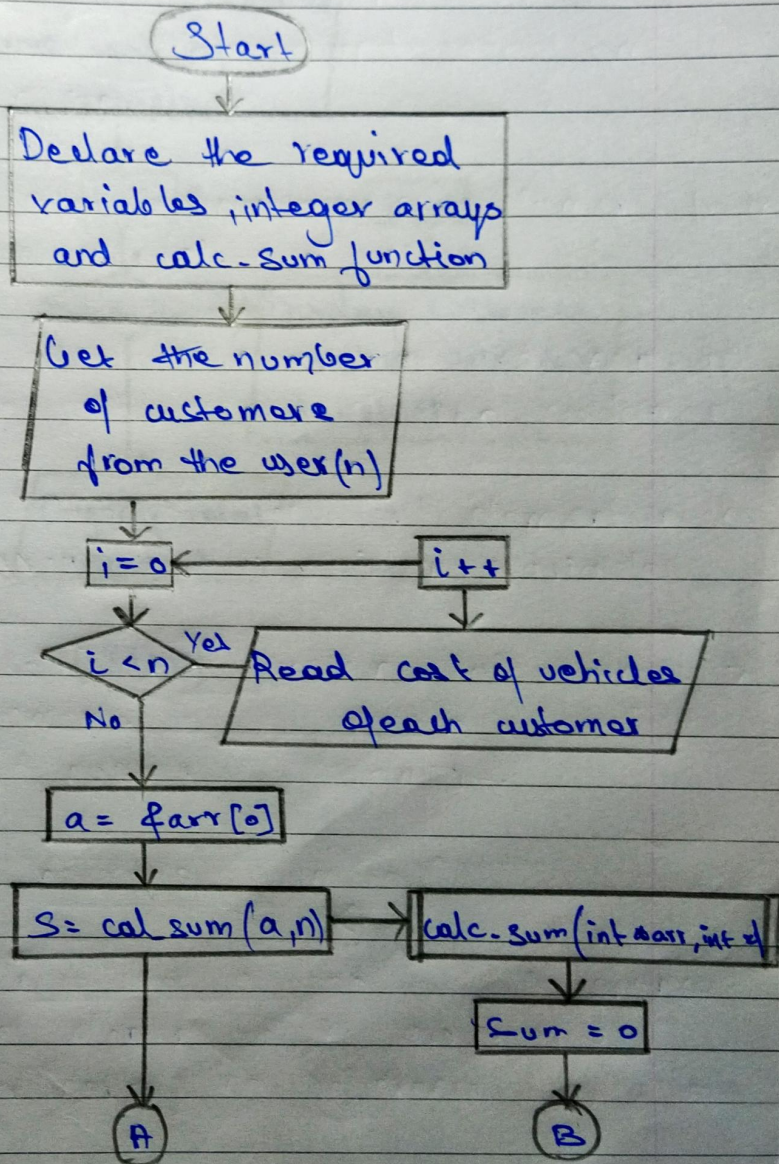 Start
Declare the required
variables, integer arrays
and calc-sum function
Get the number
of customers
from the user(n)
i=0
i++
i<n
Yes
Read cost of vehicles
of each customer
No
a= &arr[0]
S= cal_sum(a,n)
calc-sum(int *arr, int
Sum = 0
A
B